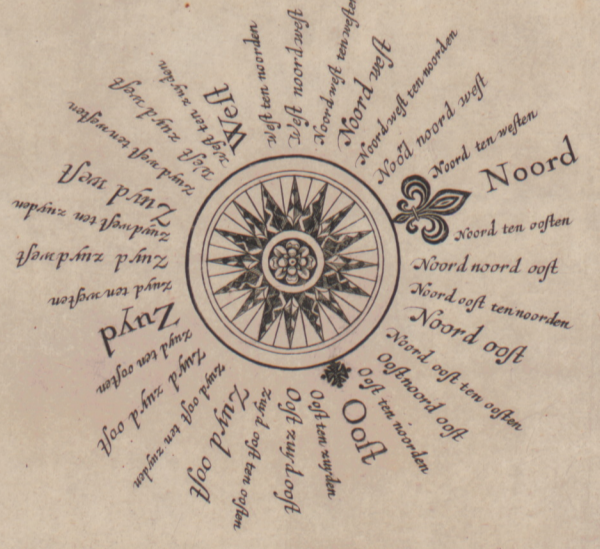 Noord
Noord ten ooſten
Noord noord ooſt
Noord ooſt ten noorden
Noord ooſt
Noord ooſt ten ooſten
Ooſt noord ooſt
Ooſt ten noorden
Ooſt
Ooſt ten zuyden
Ooſt zuyd ooſt
Zuyd ooſt ten ooſten
Zuyd ooſt
Zuyd ooſt ten zuyden
Zuyd zuyd ooſt
Zuyd ten ooſten
Zuyd
Zuyd ten weſten
Zuyd zuyd weſt
Zuyd weſt ten zuyden
Zuyd weſt
Zuyd weſt ten weſten
Weſt zuyd weſt
Weſt ten zuyden
Weſt
Weſt ten noorden
Weſt noord weſt
Noord weſt ten weſten
Noord
Noord weſt ten noorden
Noord noord weſt
Noord ten weſten